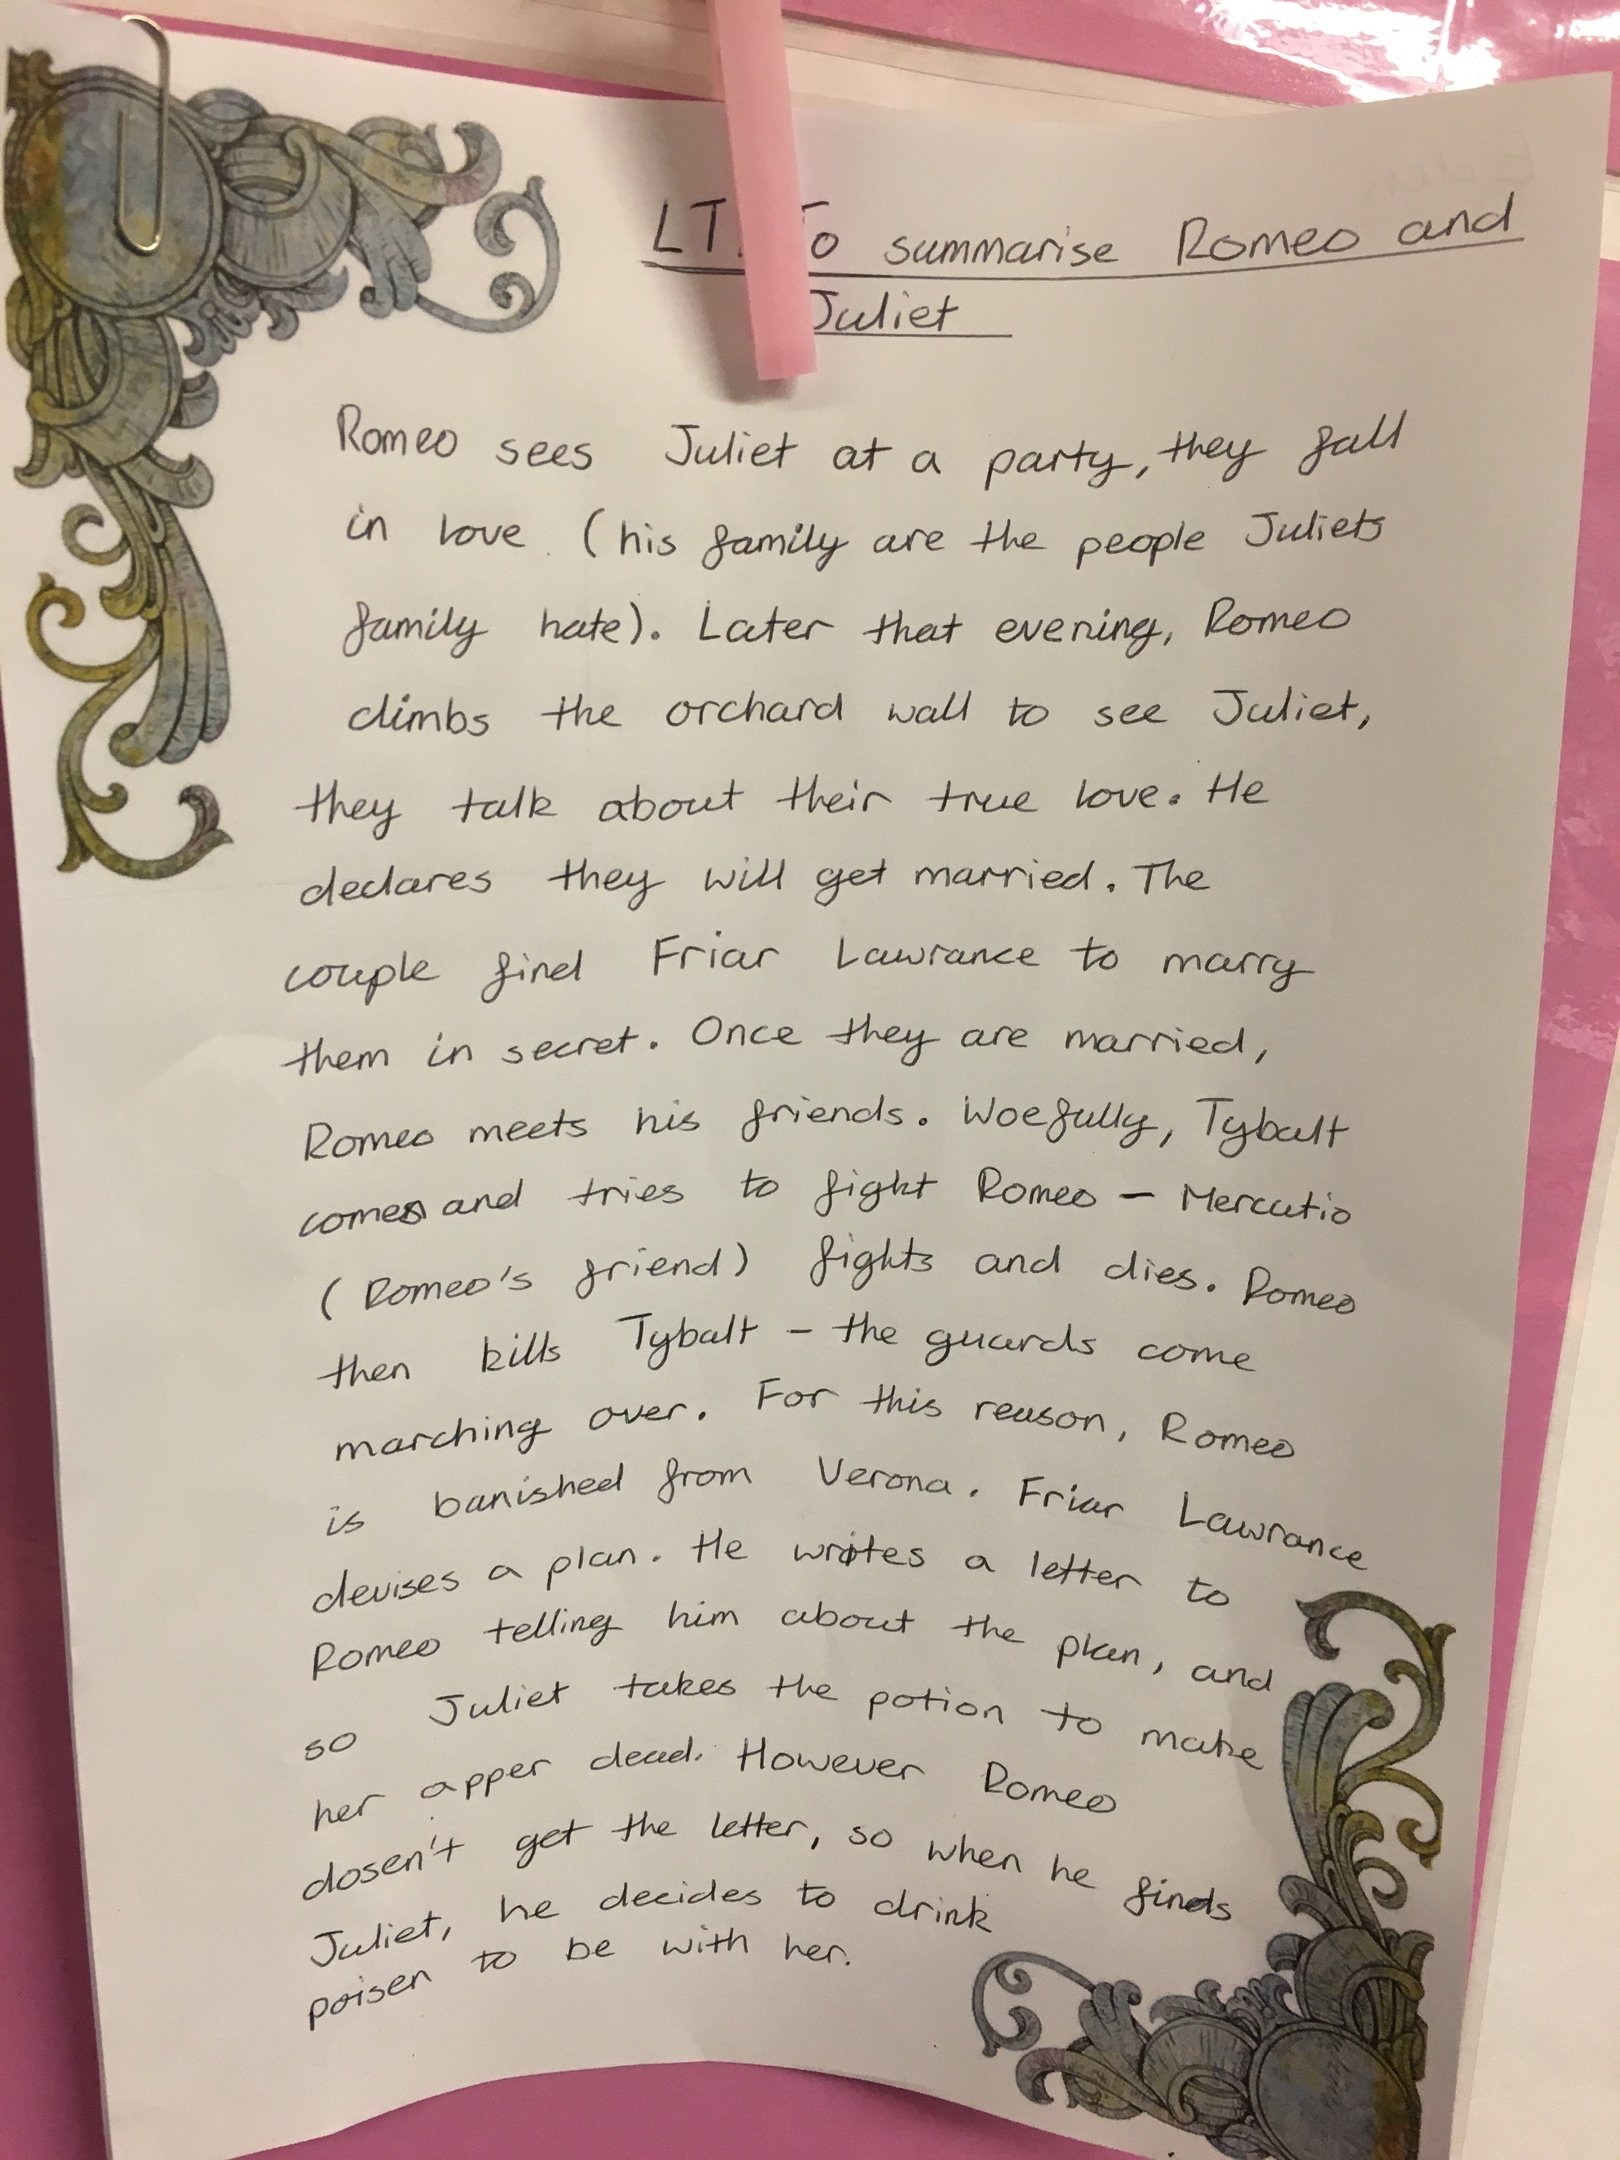 LT To summarise Romeo and
Juliet
Romeo sees Juliet at a party, they fall
in love (his family are the people Juliets
family hate). Later that evening, Romeo
climbs the orchard wall to see Juliet,
they talk about their true love. He
declares they will get married. The
couple find Friar Lawrance to marry
them in secret. Once they are married,
Romeo meets his friends. Woefully, Tybalt
comes and tries to fight Romeo - Mercutio
(Romeo's friend) fights and dies. Romeo
then kills Tybalt - the guards come
marching over. For this reason, Romeo
is banished from Verona. Friar Lawrance
devises a plan. He writes a letter to
Romeo telling him about the plan, and
so Juliet takes the potion to make
her apper dead. However Romeo
dosen't get the letter, so when he finds
Juliet, he decides to drink
poisen to be with her.